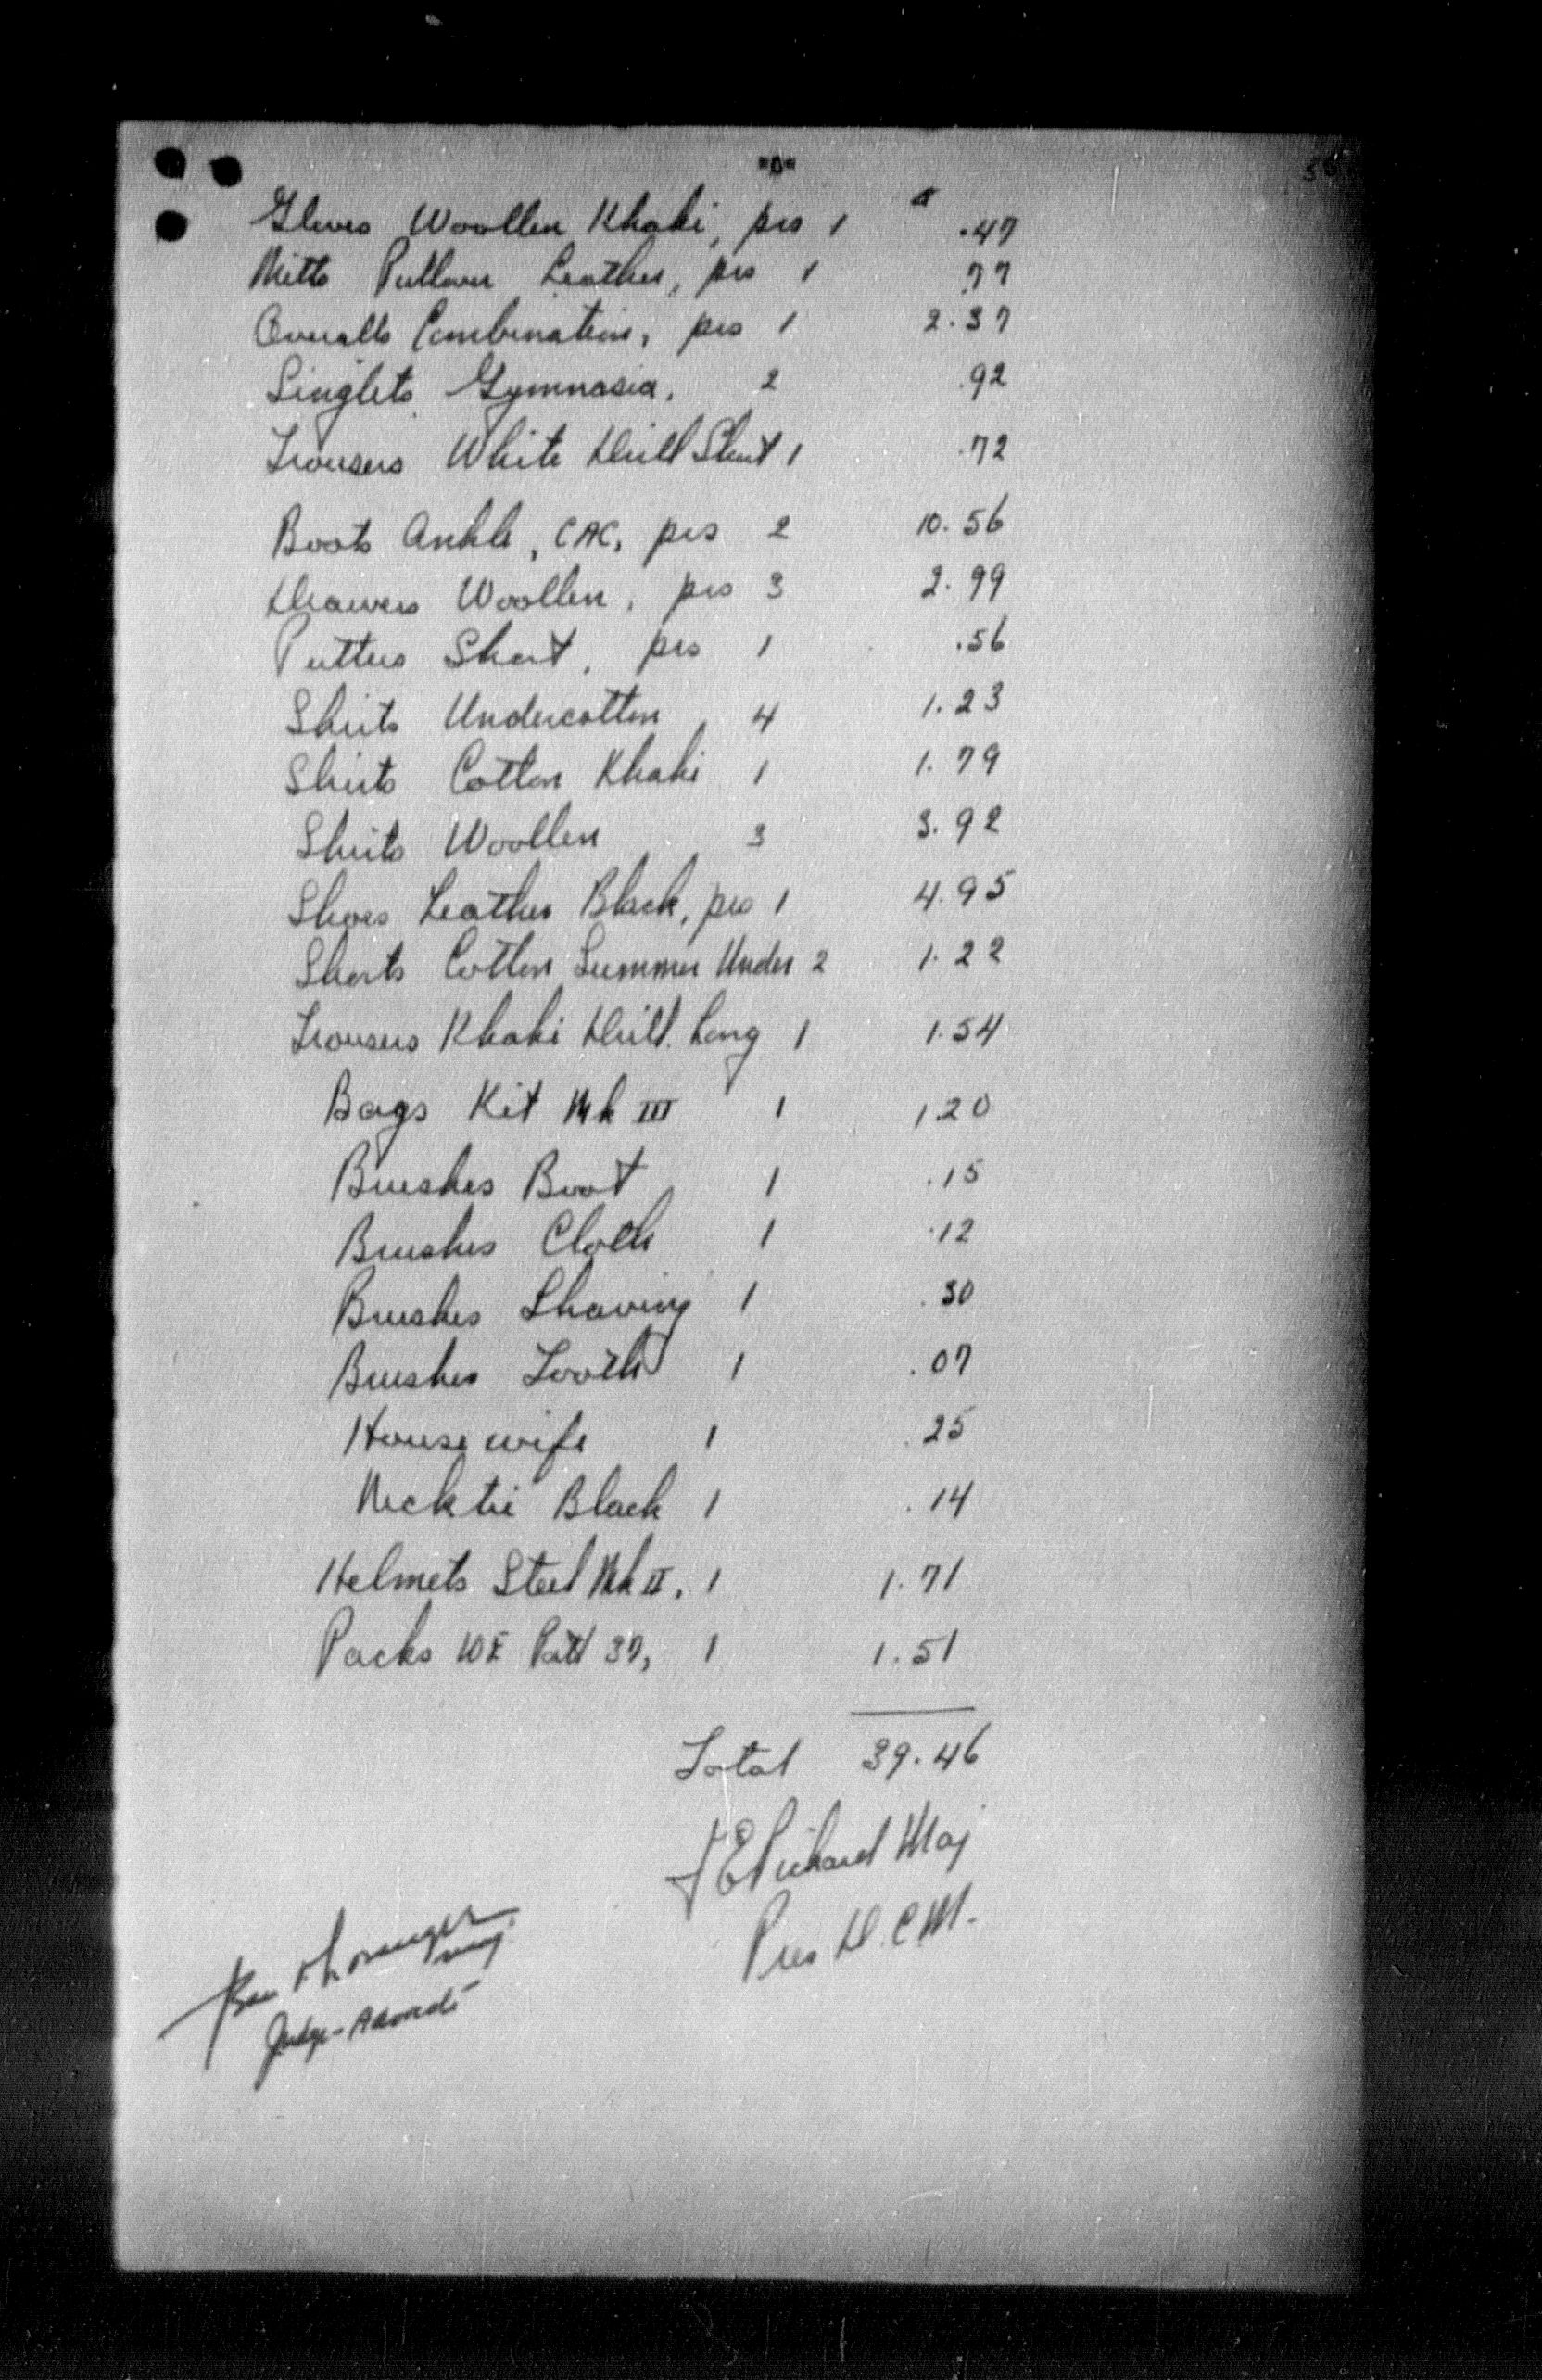 "O"
Gloves Woollen Khaki, prs 1 .47
Mitts Pullover Leather, prs 1 .77
Overalls Combination, prs 1 2.37
Singlets Gymnasia, 2 .92
Trousers White Drill Short 1 .72
Boots Ankle, CAC, prs 2 10.56
Drawers Woollen, prs 3 2.99
Puttees Short, prs 1 .56
Shirts Undercotton 4 1.23
Shirts Cotton Khaki 1 1.79
Shirts Woollen 3 3.92
Shoes Leather Black, prs 1 4.95
Shorts Cotton Summer Under 2 1.22
Trousers Khaki Drill Long 1 1.54
Bags Kit Mk III 1 1.20
Brushes Boot 1 .15
Brushes Cloth 1 .12
Brushes Shaving 1 .30
Brushes Tooth 1 .07
Housewife 1 .25
Necktie Black 1 .14
Helmets Steel Mk II, 1 1.71
Packs WE Patt 37, 1 1.51
Total 39.46
Richard Maj
Pres D.C.M.
Maj
Judge-Advocate